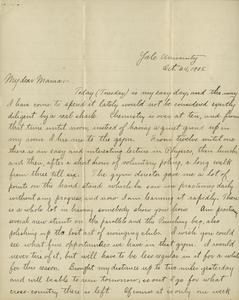 Yale University
Oct. 24, 1905
My dear Mama:-
Today (Tuesday) is my easy day, and the way
I have come to spend it lately would not be considered exactly
diligent by a real shark. Chemistry is over at ten, and from
that time until noon, instead of having a quiet grind up in
my room I hie me to the gym. From twelve until two
there is an easy and interesting lecture in Physics, then lunch,
and then, after a short hour of voluntary poling, a long walk
from three till six. The gym director gave me a lot of
points on the hand stand which I am now practising daily
without any progress, and now I am learning it rapidly. There
is a whole lot in having somebody show you how. Am
new stunts on the parallels and the climbing bar, also
polishing up the lost art of swinging clubs. I wish you could
see what fine opportunities we have in that gym. I would
never tire of it, but will have to be less regular in it for a while
for this reason. Brought my distances up to two miles yesterday
and will be able to run tomorrow, so out I go for what
cross-country there is left. Of course it is only one week